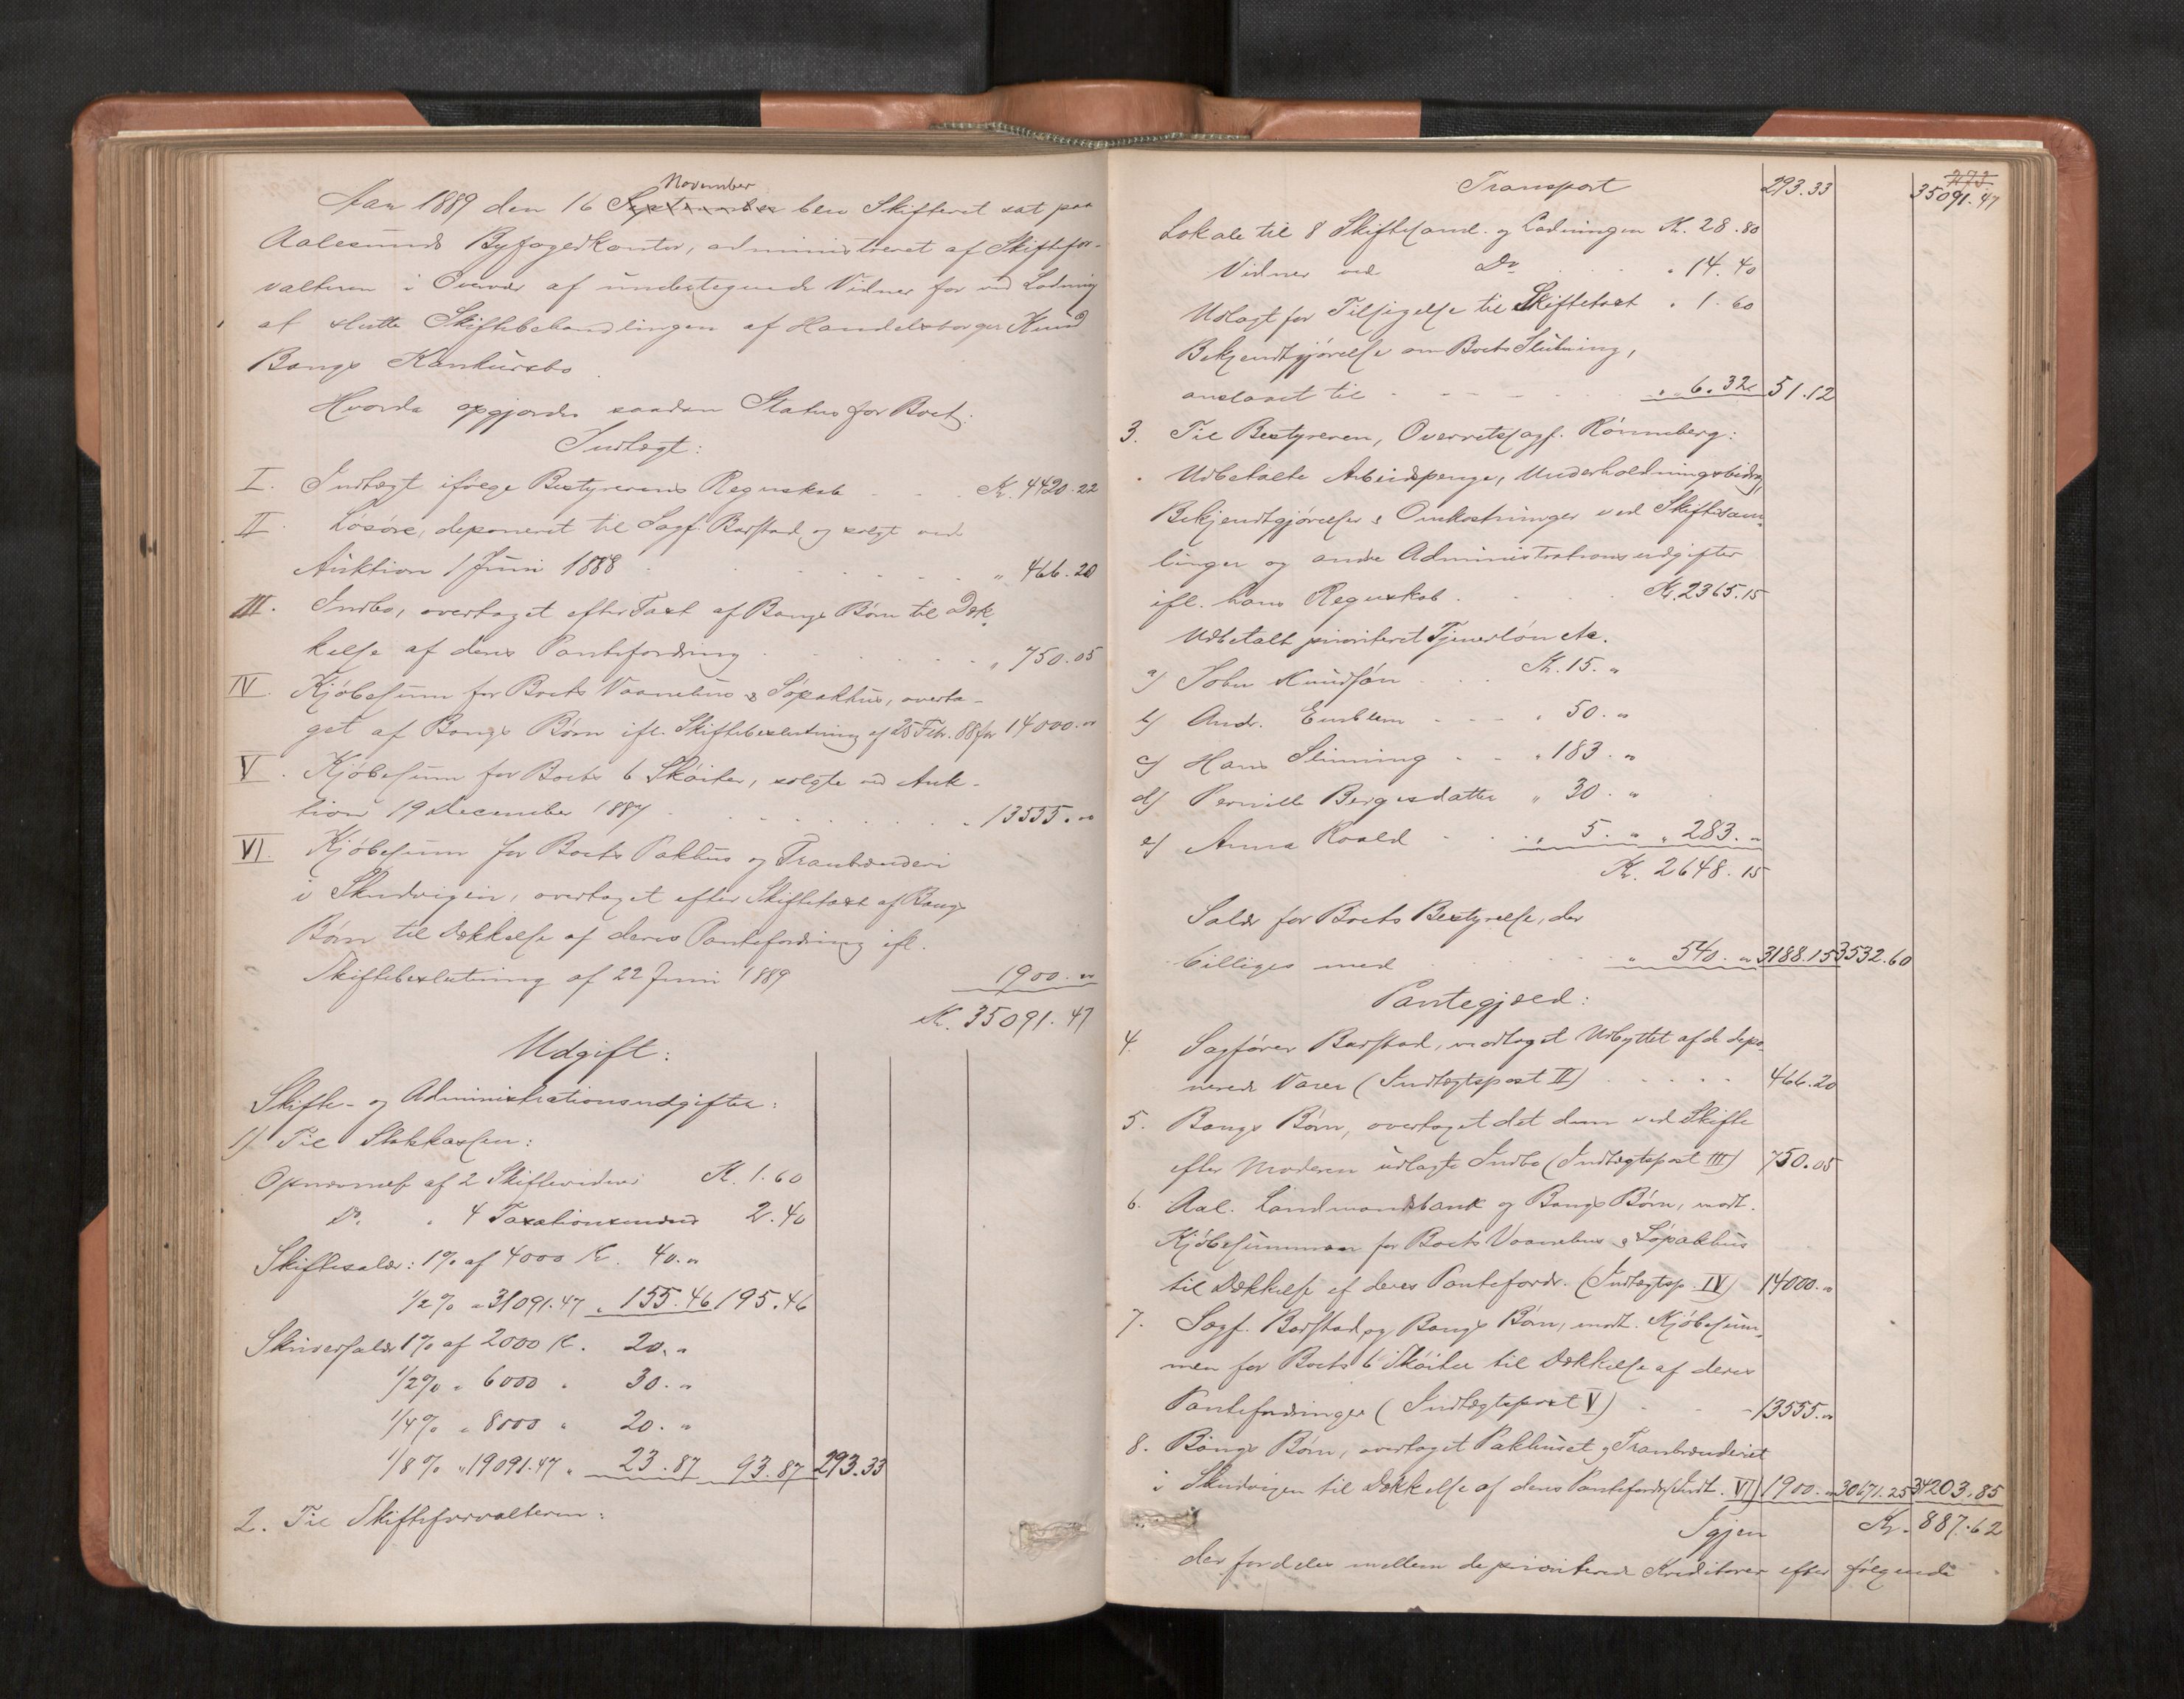 November
Aar 1889 den 16 September blev Skifteret sat paa
Aalesunds Byfogedkontor, administreret af Skiftefor-
valteren i Overvær af undertegnede Vidner for ved Lodning
at slutte Skiftebehandlingen af Handelsborger Knud
Bangs Konkursbo.
Hvorda opgjordes saadan Status for Boet:
Indtægt:
I. Indtægt ifølge Bestyrerens Regnskab . . . Kr. 4420.22
II. Løsøre, deponeret til Sagf. Barstad og solgt ved
Auktion 1 Juni 1888 . . . . . . " 466.20
III. Indbo, overtaget efter Taxt af Bangs Børn til Dæk-
kelse af deres Pantefordring . . . . . " 750.05
IV. Kjøbesum for Boets Vaanehus & Søpakhus, overta-
get af Bangs Børn ifl. Skiftebeslutning af 25 Febr. 88 for 14000. "
V. Kjøbesum for Boets 6 Skøiter, solgte ved Auk-
tion 19 December 1887 . . . . . . " 13555. "
VI. Kjøbesum for Boets Pakhus og Tranbrænderi
i Skudvigen, overtaget efter Skiftetaxt af Bangs
Børn til Dækkelse af deres Pantefordring ifl.
Skiftebeslutning af 22 Juni 1889 1900. "
Kr. 35091.47
Udgift:
Skifte- og Administrationsudgifter:
1). Til Statskassen:
Opnævnelse af 2 Skiftevidner Kr. 1.60
Do. " 4 Taxationsmænd 2.40
Skiftesalær: 1% af 4000 Kr. 40. "
1/2% " 31091.47 " 155.46 195.46
Skriversalær 1% af 2000 Kr. 20. "
1/2% " 6000 " 30. "
1/4% " 8000 " 20. "
1/8% " 19091.47 " 23.87 93.87 293.33
2. Til Skifteforvalteren:
273.
Transport 293.33 35091.47
Lokale til 8 Skiftesaml. og Lodningen Kr. 28.80
Vidner ved Do . . . " 14.40
Udlagt for Tilsigelse til Skiftetaxt " 1.60
Bekjendtgjørelse om Boets Slutning,
anslaaet til - - - - - " 6.32 51.12
3. Til Bestyreren, Overretssagf. Rønneberg:
Udbetalte Arbeidspenge, Underholdningsbidrag,
Bekjendtgjørelser & Omkostninger ved Skiftesam-
linger og andre Administrationsudgifter
ifl. hans Regnskab . . . . Kr. 2365.15
Udbetalt prioriteret Tjenerløn etc.
a) John Knudsøn . . . Kr. 15. "
b) And. Emblem - - - " 50. "
c) Hans Slinning - - " 183. "
d) Pernille Bergesdatter " 30. "
e) Anna Roald - - - " 5. " " 283. "
Kr. 2648.15
Salær for Boets Bestyrelse, der
billiges med . . . . " 540. " 3188.15 3532.60
Pantegjæld:
4. Sagfører Barstad, modtaget Udbyttet af de depo-
nerede Varer (Indtægtspost II) . . . . 466.20
5. Bangs Børn, overtaget det dem ved Skifte
efter Moderen udlagte Indbo (Indtægtspost III) 750.05
6. Aal. Landmandsbank og Bangs Børn, modt.
Kjøbesummen for Boets Vaanehus & Søpakhus
til Dækkelse af deres Pantefordr. (Indtægtsp. IV) 14000. "
7. Sagf. Barstad og Bangs Børn, modt. Kjøbesum-
men for Boets 6 Skøiter til Dækkelse af deres
Pantefordringer (Indtægtspost V) - - - 13555. "
8. Bangs Børn, overtaget Pakhuset & Tranbrænderiet
i Skudvigen til Dækkelse af deres Pantefordr. (Indt. VI) 1900. " 30671.25 34203.85
Igjen Kr. 887.62
der fordeles mellem de prioriterede Kreditorer efter følgende